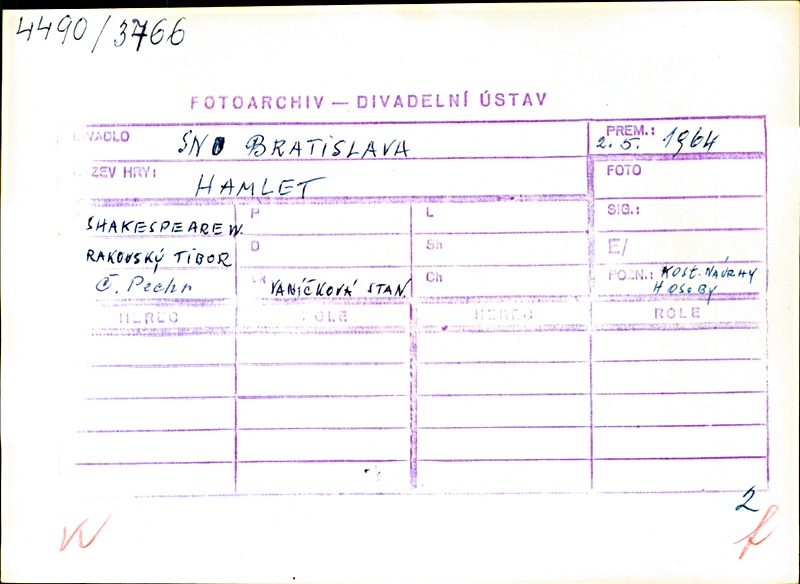 4490/3766
FOTOARCHIV — DIVADELNÍ ÚSTAV
DIVADLO SND BRATISLAVA
PREM.: 2. 5. 1964
NÁZEV HRY: HAMLET
FOTO
SHAKESPEARE W.
P
L
SIG.:
RAKOVSKÝ TIBOR
D
Sh
E/
Č. Pechr
VANÍČKOVÁ STAN.
Ch
POZN.: KOST. NÁVRHY
HEREC ROLE HEREC ROLE
2